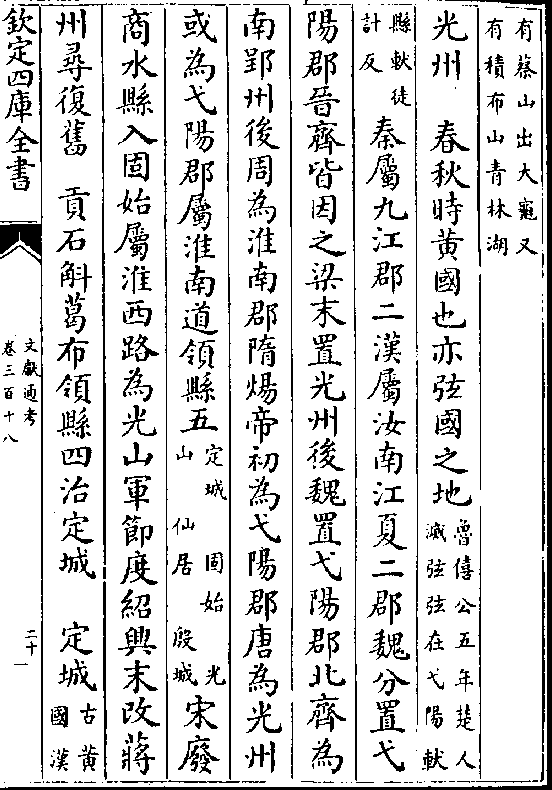 有蔡山出大龜又
有積布山青林湖
光州　春秋時黄國也亦弦國之地魯僖公五年楚人
滅弦弦在弋陽軑
縣軑徒
計反
秦屬九江郡二漢屬汝南江夏二郡魏分置弋
陽郡晉齊皆因之梁末置光州後魏置弋陽郡北齊為
南郢州後周為淮南郡隋煬帝初為弋陽郡唐為光州
或為弋陽郡屬淮南道領縣五定城　固始　光
山　仙居　殷城
宋廢
商水縣入固始屬淮西路為光山軍節度紹興末改蔣
州尋復舊　貢石斛葛布領縣四治定城　定城古黄
國漢
欽定四庫全書
文獻通考
卷三百十八
二十